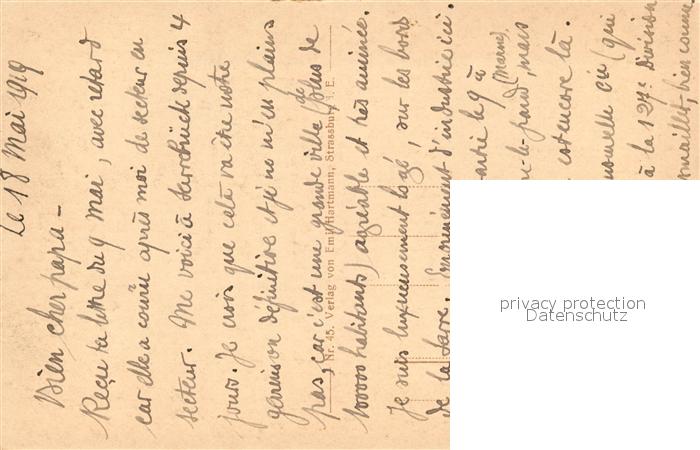 Le 18 Mai 1919
Bien cher papa -
Reçu ta lettre du 9 mai, avec retard
car elle a couru après moi de secteur en
secteur. Me voici à Sarrebrück depuis 4
jours. Je crois que cela va être notre
garnison définitive et je ne m'en plains
pas, car c'est une grande ville (de plus de
100000 habitants) agréable et très animée.
Je suis luxueusement logé, sur les bords
de la Sarre. Énormément d'industrie ici.
partie le 9 à
(Marne), mais
est encore là.
(qui
à la 127e division
bien comme
Nr. 45. Verlag von Emil Hartmann, Strassburg i. E.
privacy protection
Datenschutz